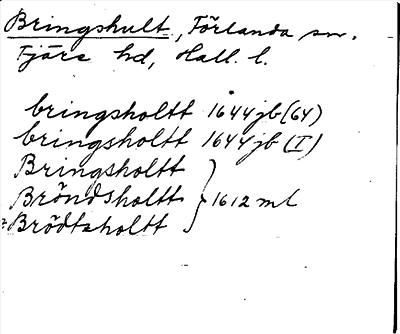 Bringshult, Förlanda sn.
Fjäre hd, Hall. l.
bringsholtt 1644 jb (64)
bringsholtt 1644 jb (I)
Bringsholtt
Bröndsholtt } 1612 ml
? Brödtzholtt